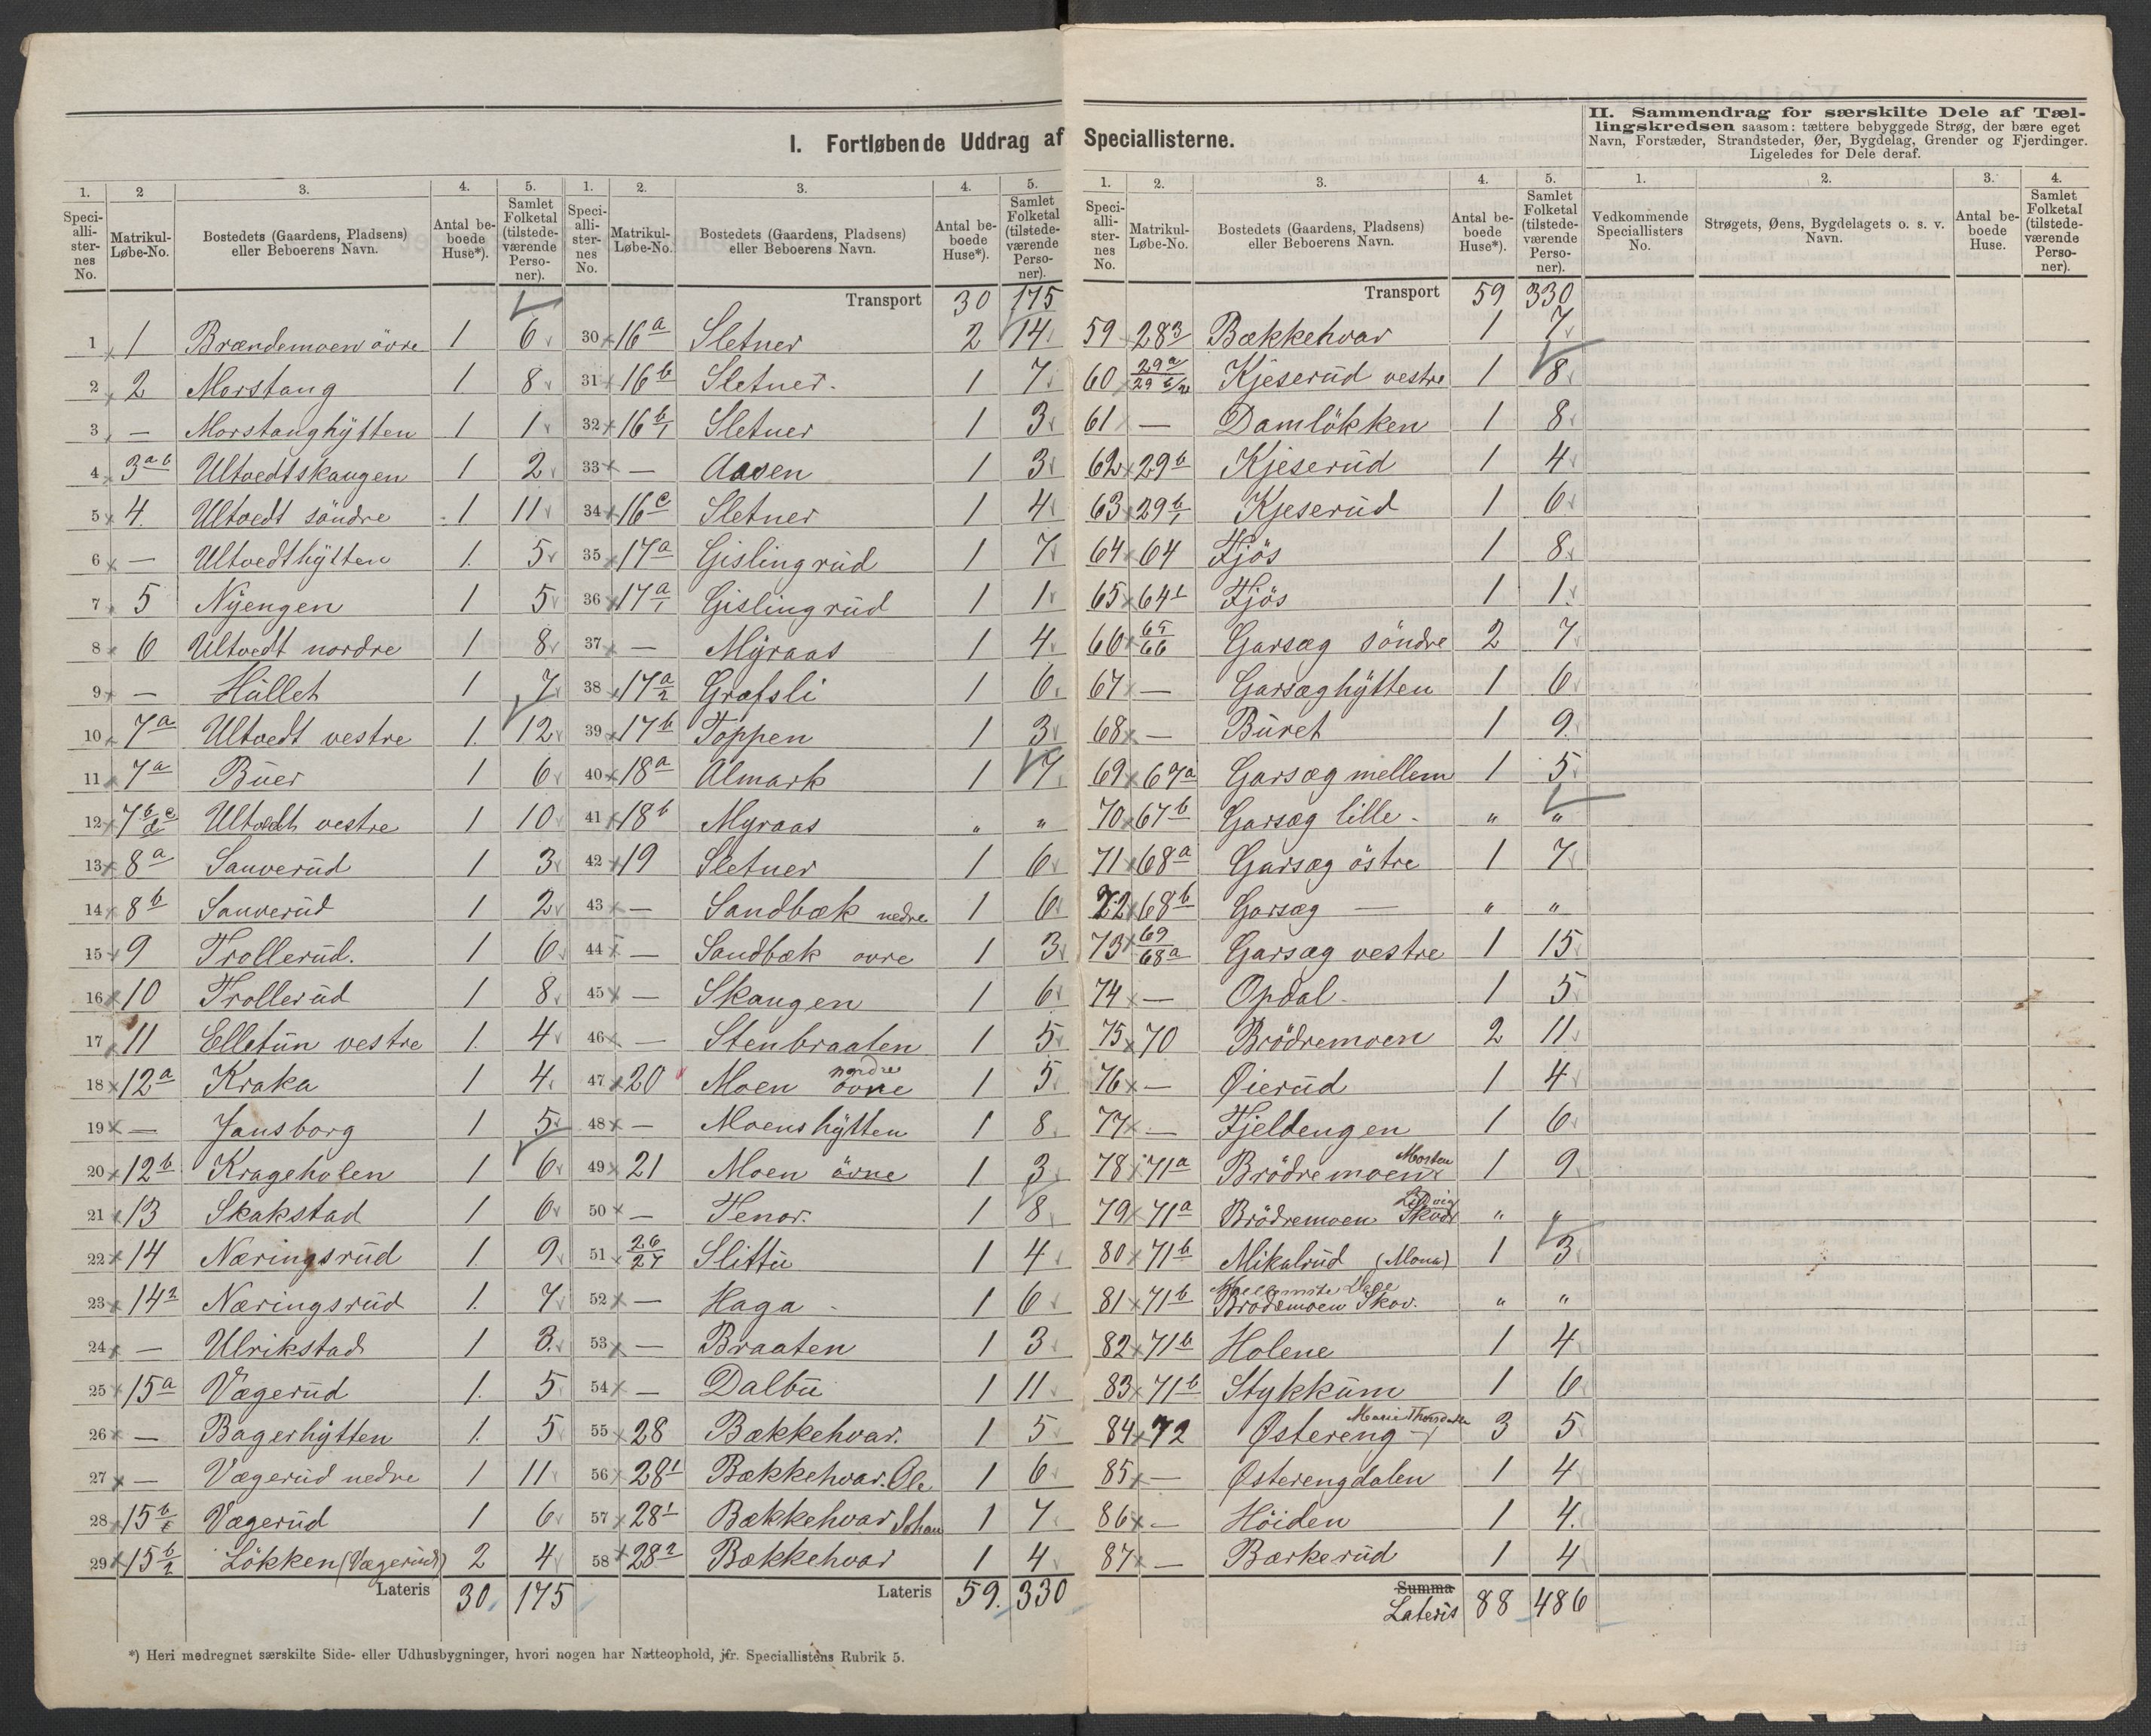 I. Fortløbende Uddrag af Speciallisterne.
1. 2 3. 4. 5.
Speciallisternes No. Matrikul-Løbe-No. Bostedets (Gaardens, Pladsens) eller Beboerens Navn. Antal beboede Huse*). Samlet Folketal (tilstedeværende Personer).
1 1 Brændemoen övre 1 6
2 2 Morstang 1 8
3 — Morstanghÿtten 1 1
4 3ab Ultvedtskaugen 1 2
5 4. Ultvedt söndre 1 11
6 — Ultvedthÿtten 1. 5
7 5 Nÿengen 1 5
8 6 Ultvedt nordre 1 8
9 — Hŭllet 1 7
10 7a Ultvedt vestre 1. 12
11 7a Bŭer 1 6
12 7b c d Ultvedt vestre 1 10
13 8a Sauverŭd 1 3
14 8b Sauverŭd 1 2
15 9 Trollerŭd. 1 6
16 10 Trollerŭd 1 8
17 11 Elletŭn vestre 1. 4
18 12a Kraka 1 4
19 — Jansborg 1 5
20 12b Krageholen 1 6
21 13 Skakstad 1 6
22 14 Næringsrŭd 1. 9
23 14² Næringsrŭd 1. 7
24 — Ulrikstad 1 3.
25 15a Vægerŭd 1. 5
26 — Bagerhÿtten 1. 5
27 — Vægerŭd nedre 1 11
28 15b/1 Vægerŭd 1 6
29 15b/2 Lökken (Vægerŭd) 2 4
Lateris 30. 175
1. 2. 3. 4. 5.
Speciallisternes No. Matrikul-Løbe-No. Bostedets (Gaardens, Pladsens) eller Beboerens Navn. Antal beboede Huse*). Samlet Folketal (tilstedeværende Personer).
Transport 30 175
30 16a Sletner 2 14
31 16b Sletner. 1 7
32 16b/1 Sletner 1 3
33 — Aasen 1 3
34 16c Sletner 1 4
35 17a Gislingrŭd 1 7
36 17a/1 Gislingrŭd 1 1
37 — Mÿraas 1 4
38 17a/2 Grafsli 1 6
39 17b Toppen 1 3
40 18a Almark 1 7
41 18b Myraas " "
42 19 Sletner 1 6
43 — Sandbæk nedre 1 6
44 — Sandbæk ovre 1 3
45 — Skaugen 1 6
46 — Stenbraaten 1 5
47 20 Moen nordre övre 1 5
48 — Moenshÿtten 1 8
49 21 Moen övre 1 3
50 — Tenor. 1 8
51 26/27 Slittŭ 1 4
52 — Haga 1 6
53 — Braaten 1 3
54 — Dalbŭ 1 11
55 28 Bækkehvar. 1 5
56 28¹ Bækkehvar. Ole 1 6
57 28¹ Bækkehvar Johan 1 7
58 28² Bækkehvar 1 4
Lateris 59. 330
1. 2. 3. 4. 5.
Speciallisternes No. Matrikul-Løbe-No. Bostedets (Gaardens, Pladsens) eller Beboerens Navn. Antal beboede Huse*). Samlet Folketal (tilstedeværende Personer).
Transport 59 330
59 28³ Bækkehvar 1 7
60 29a 29b/2 Kjeserŭd vestre 1 8
61 — Damlökken 1 8
62 29b Kjeserŭd 1 4
63 29b/1 Kjeserŭd 1 6
64 64 Fjös 1 8
65 64¹ Fjös 1 1
66 65/66 Garsæg söndre 2 7
67 — Garsæghÿtten 1 6
68 — Bŭret 1 9
69 67a Garsæg mellem 1 5
70 67b Garsæg lille " "
71 68a Garsæg östre 1 7
72 68b Garsæg — " "
73 69/68a Garsæg vestre 1 15
74 — Opdal 1 5
75 70 Brödremoen 2 11
76 — Øierŭd 1 4
77 — Fjeldengen 1 6
78 71a Brödremoen Morten 1 9
79 71a Brödremoen " "
80 71b Mikalrŭd (Mona) 1 3
81 71b Brödemoen Skov. " "
82 71b Holene 1 4
83 71b Stykkŭm 1 6
84 72 Østereng 3 5
85 — Østerengdalen 1 4
86 — Höiden 1 4.
87 — Bærkerŭd 1 4
Summa
Lateris 88 486
II. Sammendrag for særskilte Dele af Tællingskredsen saasom: tættere bebyggede Strøg, der bære eget
Navn, Forstæder, Strandsteder, Øer, Bygdelag, Grender og Fjerdinger.
Ligeledes for Dele deraf.
1. 2. 3. 4.
Vedkommende Speciallisters No. Strøgets, Øens, Bygdelagets o. s. v. Navn. Antal beboede Huse. Samlet Folketal (tilstedeværende Personer).
*) Heri medregnet særskilte Side- eller Udhusbygninger, hvori nogen har Natteophold, jfr. Speciallistens Rubrik 5.